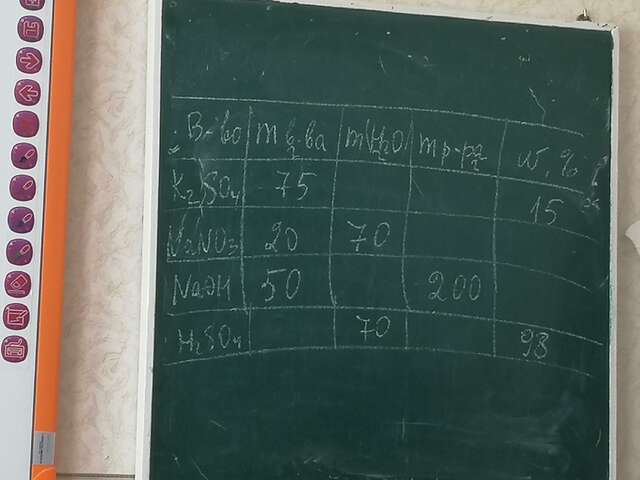 В-во m в-ва m(H2O) m р-ра W, %
г г г
K2SO4 75 15
NaNO3 20 70
NaOH 50 200
H2SO4 70 98